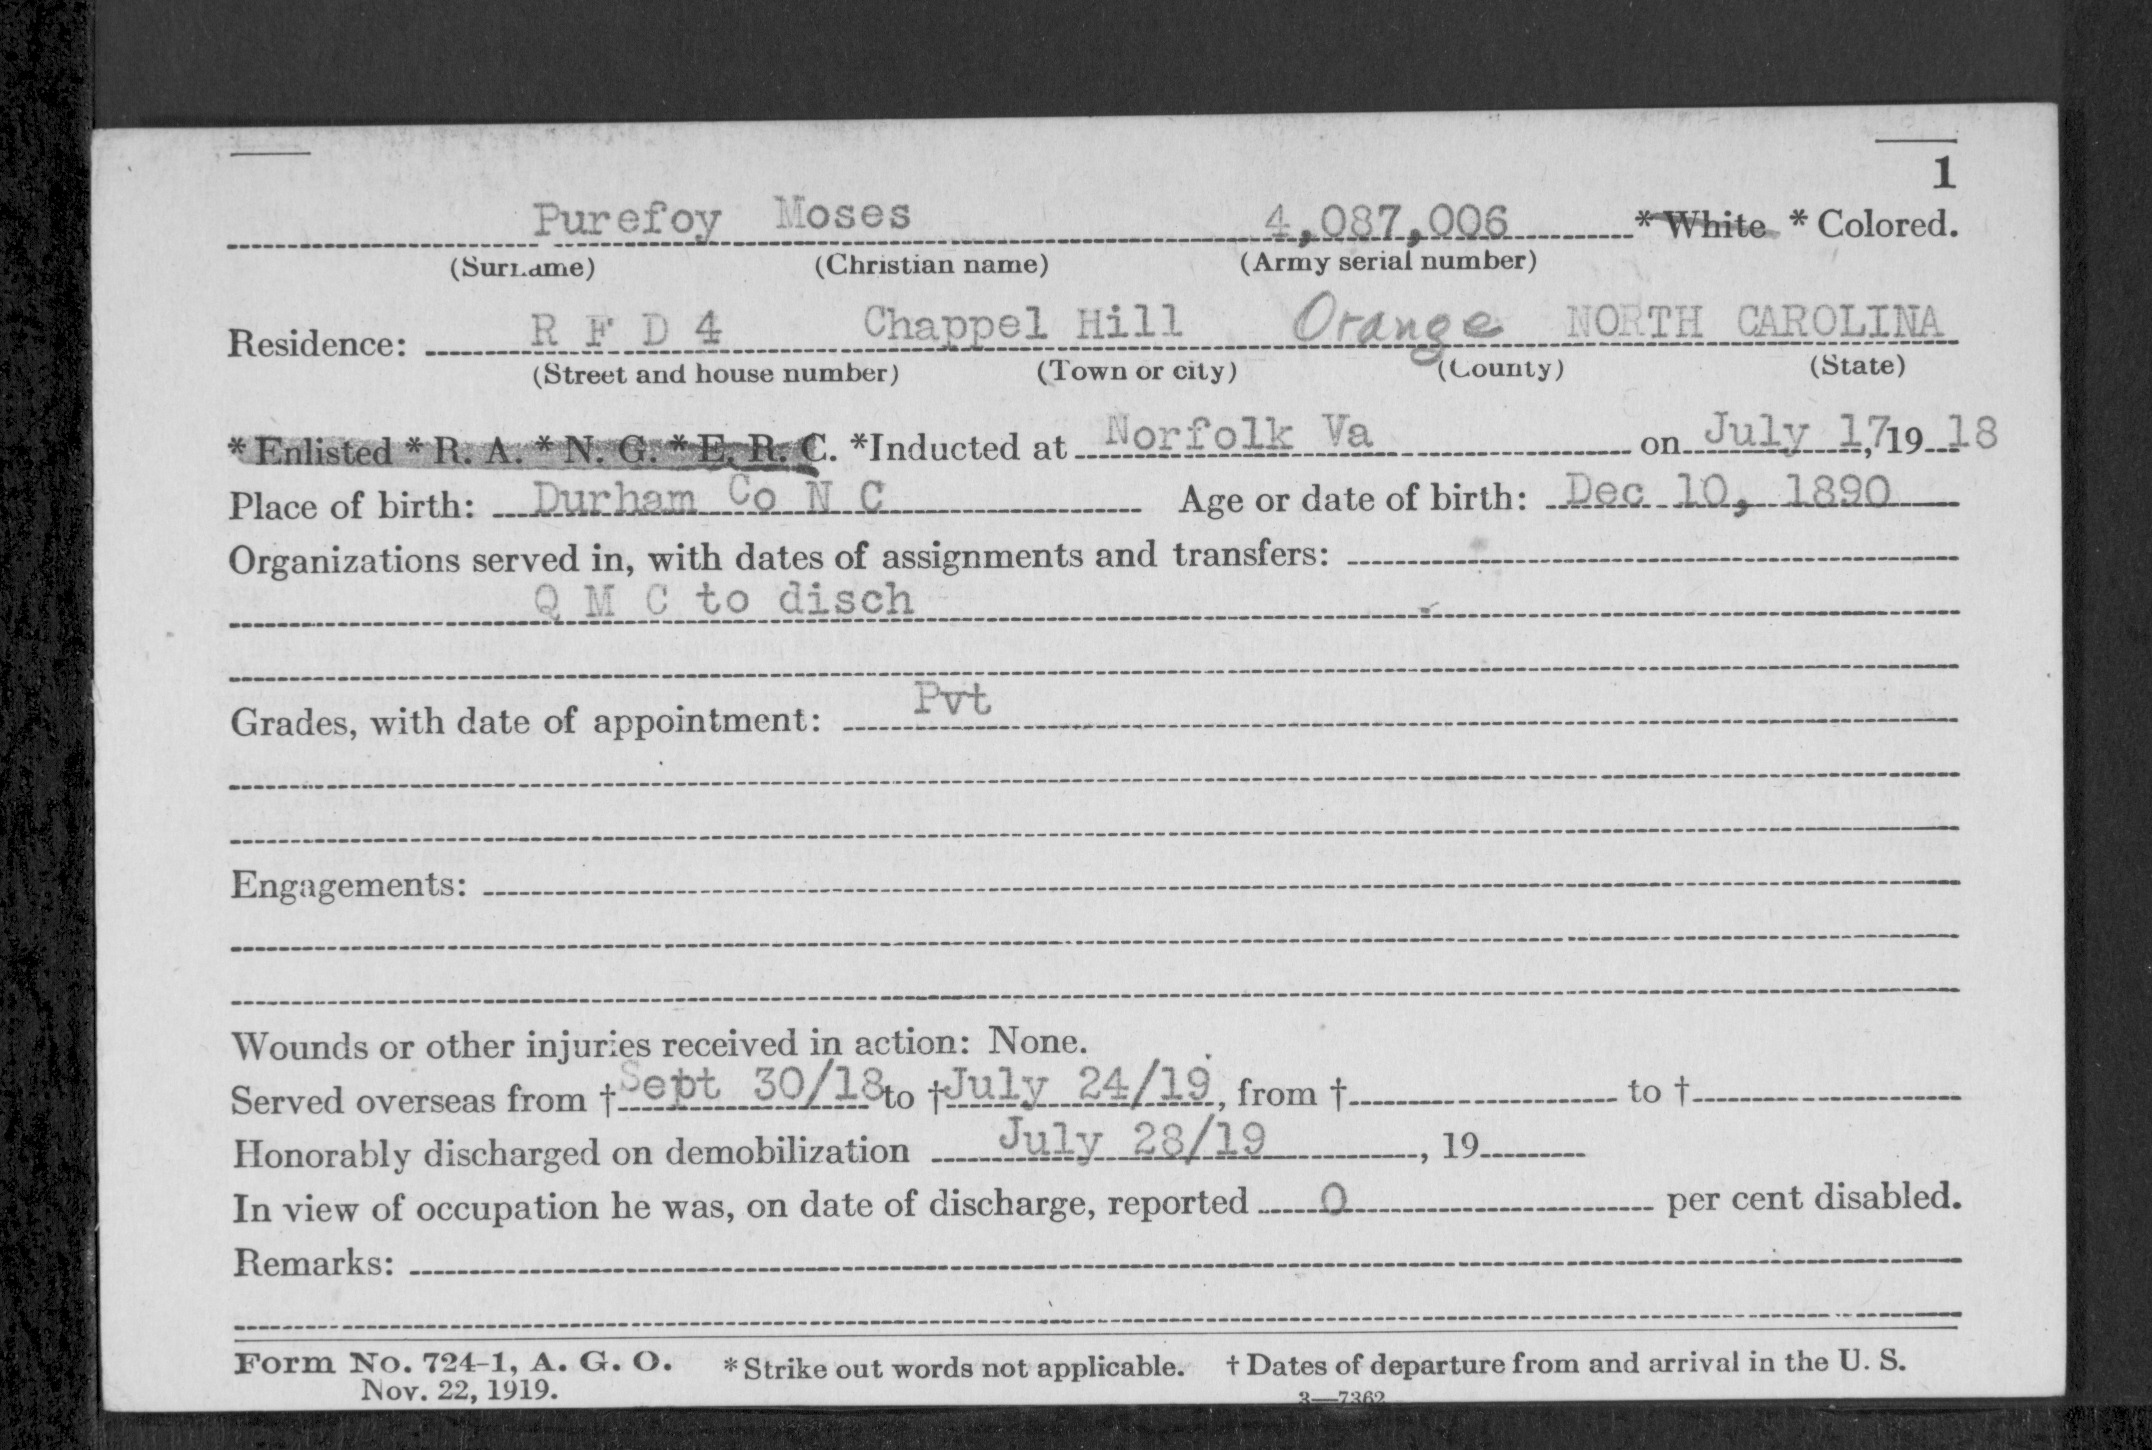 1
Purefoy Moses 4,087,006 * White * Colored.
(Surname) (Christian name) (Army serial number)
Residence: R F D 4 Chappel Hill Orange NORTH CAROLINA
(Street and house number) (Town or city) (County) (State)
* Enlisted * R. A. * N. G. * E. R. C. *Inducted at Norfolk Va on July 17, 19 18
Place of birth: Durham Co N C Age or date of birth: Dec 10, 1890
Organizations served in, with dates of assignments and transfers:
Q M C to disch
Grades, with date of appointment: Pvt
Engagements:
Wounds or other injuries received in action: None.
Served overseas from † Sept 30/18 to † July 24/19, from † to †
Honorably discharged on demobilization July 28/19, 19
In view of occupation he was, on date of discharge, reported 0 per cent disabled.
Remarks:
Form No. 724-1, A. G. O. * Strike out words not applicable. † Dates of departure from and arrival in the U. S.
Nov. 22, 1919. 3—7362